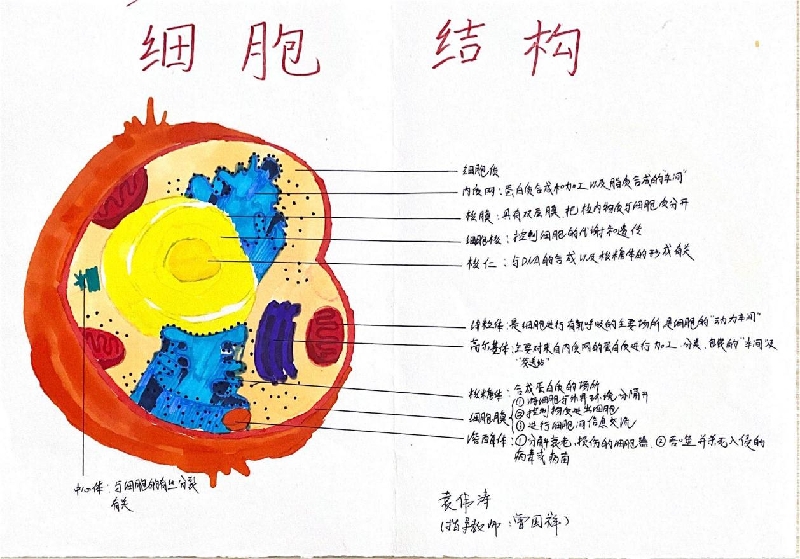 细胞 结构
细胞质
内质网：蛋白质合成和加工，以及脂质合成的“车间”
核膜：具有双层膜，把核内物质与细胞质分开
细胞核：控制细胞的代谢和遗传
核仁：与DNA的合成以及核糖体的形成有关
线粒体：是细胞进行有氧呼吸的主要场所是细胞的“动力车间”
高尔基体：主要对来自内质网的蛋白质进行加工、分类、包装的“车间”及
“发送站”
核糖体：合成蛋白质的场所
①将细胞与外界环境分隔开
细胞膜 ②控制物质进出细胞
③进行细胞间信息交流
溶酶体：①分解衰老，损伤的细胞器，②吞噬并杀死入侵的
病毒或病菌
中心体：与细胞的有丝分裂
有关
袁伟涛
（指导教师：曾国祥）